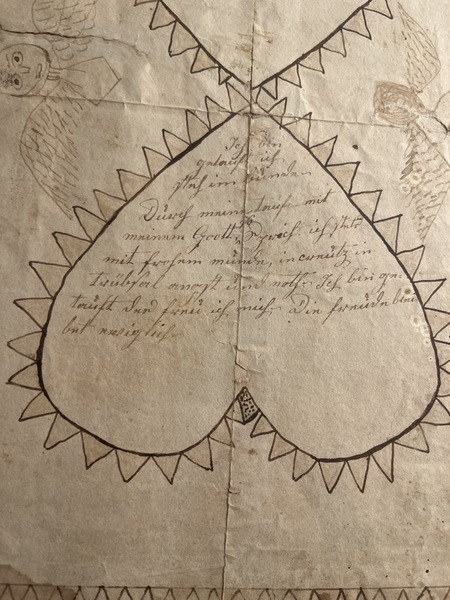 Ich bin
getauft ich
steh im bunde.
Durch meine taufe mit
meinem Gott. So sprich ich stets
mit frohem munde, in creutz in
trübsal angst und noth. Ich bin ge=
tauft des freu ich mich. Die freude blei
bet ewig ich.